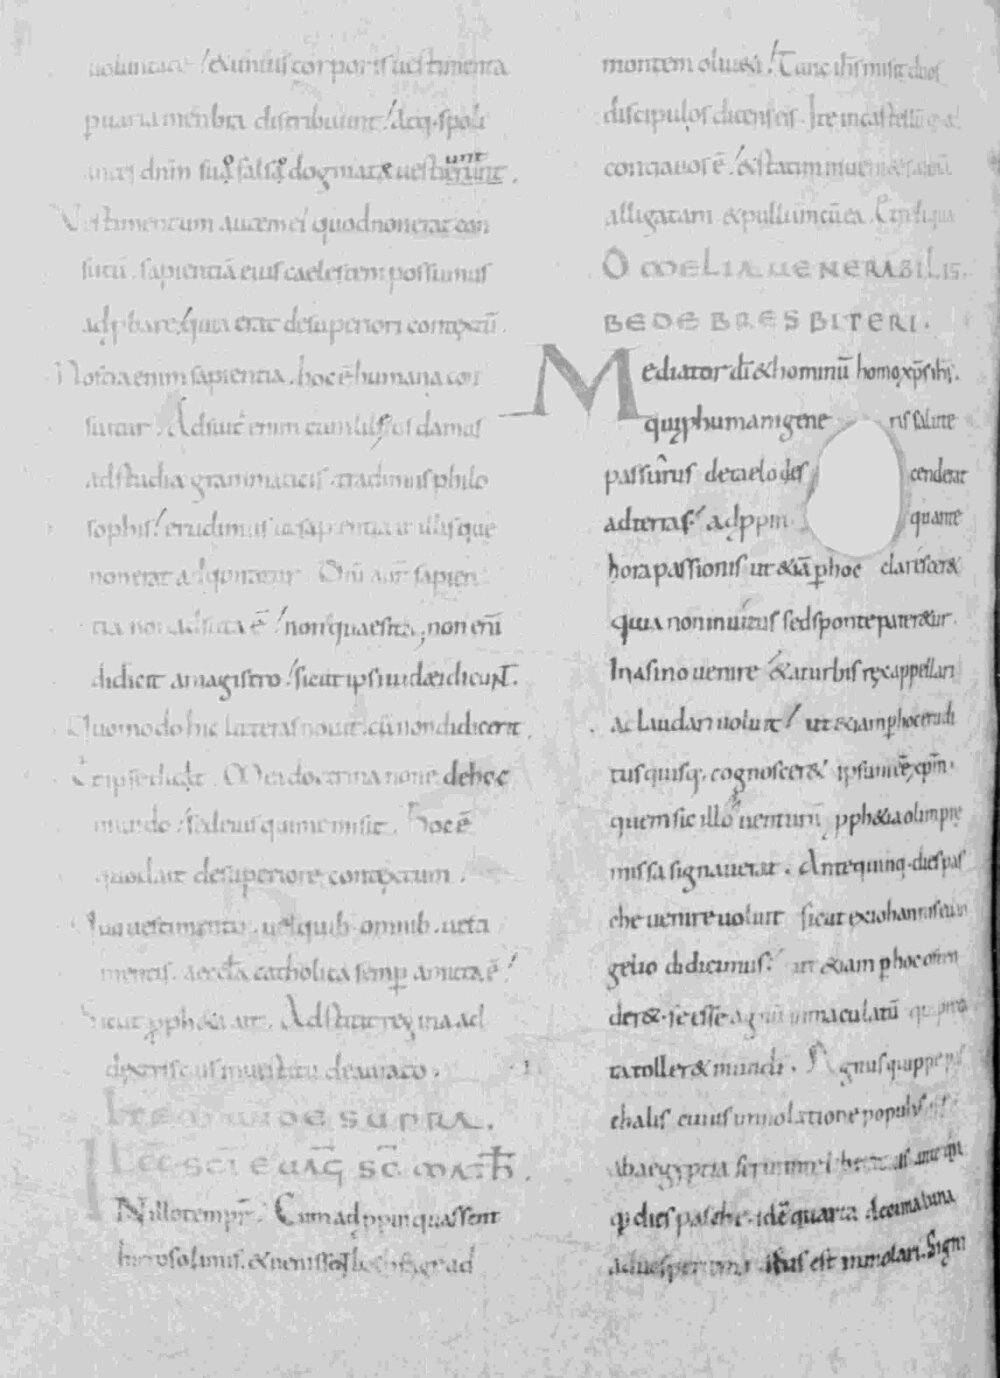 uoluntate / & unius corporis uestimenta
p uaria menbra distribuunt / Atq· spoli
antes dnm suo falso dogmate uestierunt .
unt
Vestimentum autem ei quod non erat con
sutū . sapientiā eius caelestem possumus
adphare / quia erat desuperiori contextū .
Nostra enim sapientia . hoc ē humana con
suitur . Adsuit enim cum lios damus
ad studia grammaticis . tradimus philo
sophis / erudimus sapientia illis que
non erat adquiratur Dni aut sapien
tia non adsuta ē / non quaesita , non enī
didicit a magistro / sicut ipsi iudaei dicunt .
Quomodo hic litteras nouit . cū non didicerit .
Et ipse dicit . Mea doctrina non e de hoc
mundo / sed eius qui me misit . Hoc ē
quod ait desuperiore contextum .
uestimento . uel quib· omnib· ueta
mentis . aeccla catholica semp amicta ē /
Sicut pph&a ait . Adstitit regina ad
dextris tuis in uestitu deaurato .
ITEM UNDE SUPRA .
LEC SCI EUAG SC MATH .
IN illo tempr . Cum adppinquassent
hierosolimis . & uenissent bethfage ad
montem oliueti / Tunc ihs misit duos
discipulos dicens eis . Ite in castellū
contra uos ē / & statim inueni&is asinā
alligatam & pullum cū ea . Et reliqua
OMELIA UENERABILIS
BEDE BRESBITERI .
Mediator di & hominū homo xps ihs .
qui p humani generis salute
passurus de caelo descenderat
ad terras / adppin quante
hora passionis ut &iā p hoc claresceret
quia non inuitus sed sponte pater&ur .
In asino uenire & a turbis rex appellari
ac laudari uoluit / ut &iam p hoc erudi
tus quisq· cognoscer& ipsum eē xpm .
quem sic illo uenturū pph&ia olim pre
missa signauerat . Ante quinq· dies pas
che uenire uoluit sicut ex iohannis euan
gelio didicimus / ut &iam p hoc osten
der& . se esse agnū inmaculatū qui pecca
ta toller& mundi . Agnus quippe pas
chalis cuius immolatione populus
ab aegyptia seruitute liberatus ante
q dies pasche . id ē quarta decima luna
ad uesperum itus est inmolari . Signi